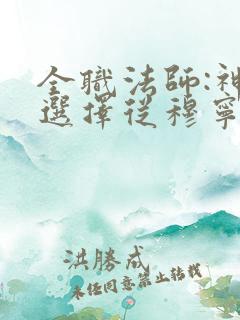 全職法師:神
選擇從穆寧
洪勝成
未經同意禁止轉載